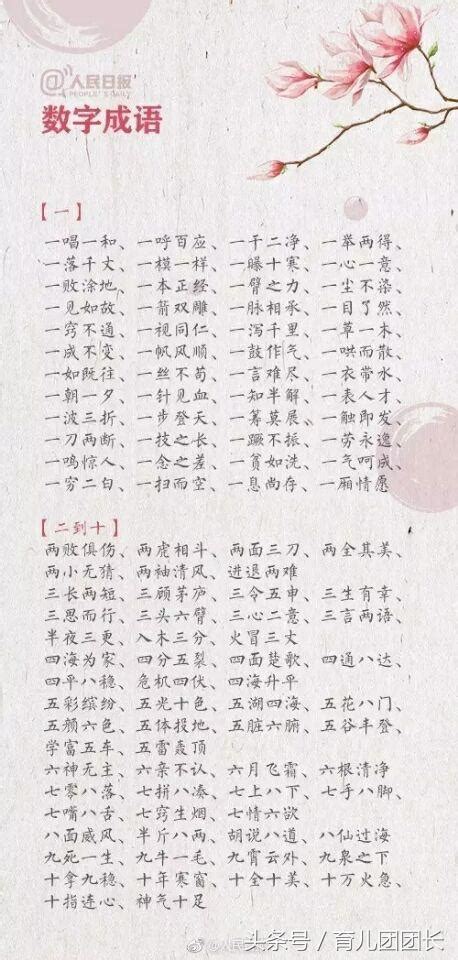 @人民日报
PEOPLE'S DAILY
数字成语
【一】
一唱一和、一呼百应、一干二净、一举两得、
一落千丈、一模一样、一曝十寒、一心一意、
一败涂地、一本正经、一臂之力、一尘不染、
一见如故、一箭双雕、一脉相承、一目了然、
一窍不通、一视同仁、一泻千里、一草一木、
一成不变、一帆风顺、一鼓作气、一哄而散、
一如既往、一丝不苟、一言难尽、一衣带水、
一朝一夕、一针见血、一知半解、一表人才、
一波三折、一步登天、一筹莫展、一触即发、
一刀两断、一技之长、一蹶不振、一劳永逸、
一鸣惊人、一念之差、一贫如洗、一气呵成、
一穷二白、一扫而空、一息尚存、一厢情愿
【二到十】
两败俱伤、两虎相斗、两面三刀、两全其美、
两小无猜、两袖清风、进退两难
三长两短、三顾茅庐、三令五申、三生有幸、
三思而行、三头六臂、三心二意、三言两语、
半夜三更、入木三分、火冒三丈
四海为家、四分五裂、四面楚歌、四通八达、
四平八稳、危机四伏、四海升平
五彩缤纷、五光十色、五湖四海、五花八门、
五颜六色、五体投地、五脏六腑、五谷丰登、
学富五车、五雷轰顶
六神无主、六亲不认、六月飞霜、六根清净
七零八落、七拼八凑、七上八下、七手八脚、
七嘴八舌、七窍生烟、七情六欲
八面威风、半斤八两、胡说八道、八仙过海
九死一生、九牛一毛、九霄云外、九泉之下
十拿九稳、十年寒窗、十全十美、十万火急、
十指连心、神气十足
@人民
头条号／育儿团团长